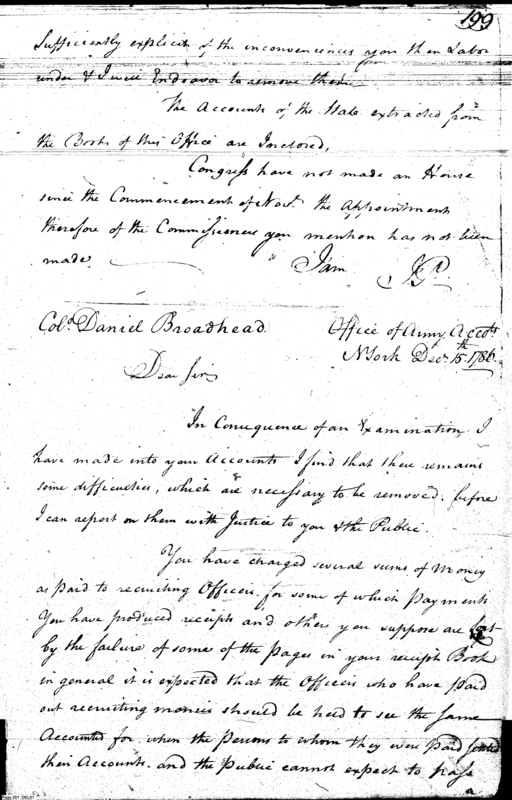 199
Sufficiently explicit of the inconveniences you then Labor
under & I will Endeavor to remove them.
The Accounts of the State extracted from
the Books of this Office are Inclosed,
Congress have not made an House
since the Commencement of Novr. the Appointment
therefore of the Commissioners you mention has not been
made.
I am
Colo. Daniel Broadhead
Office of Army Accots
N York Decr. 15th. 1786.
Dear Sir
In Consequence of an Examination I
have made into your Accounts I find that there remains
some difficulties, which are necessary to be removed before
I can report on them with Justice to you & the Public.
You have charged several sums of Money
as paid to recruiting Officers for some of which Payments
You have produced receipts and others you suppose are lost
by the failure of some of the pages in your receipt Book
in general it is expected that the Officers who have paid
out recruiting monies should be held to see the same
Accounted for when the Persons to whom they were paid settled
their Accounts. and the Public cannot expect to pass
a